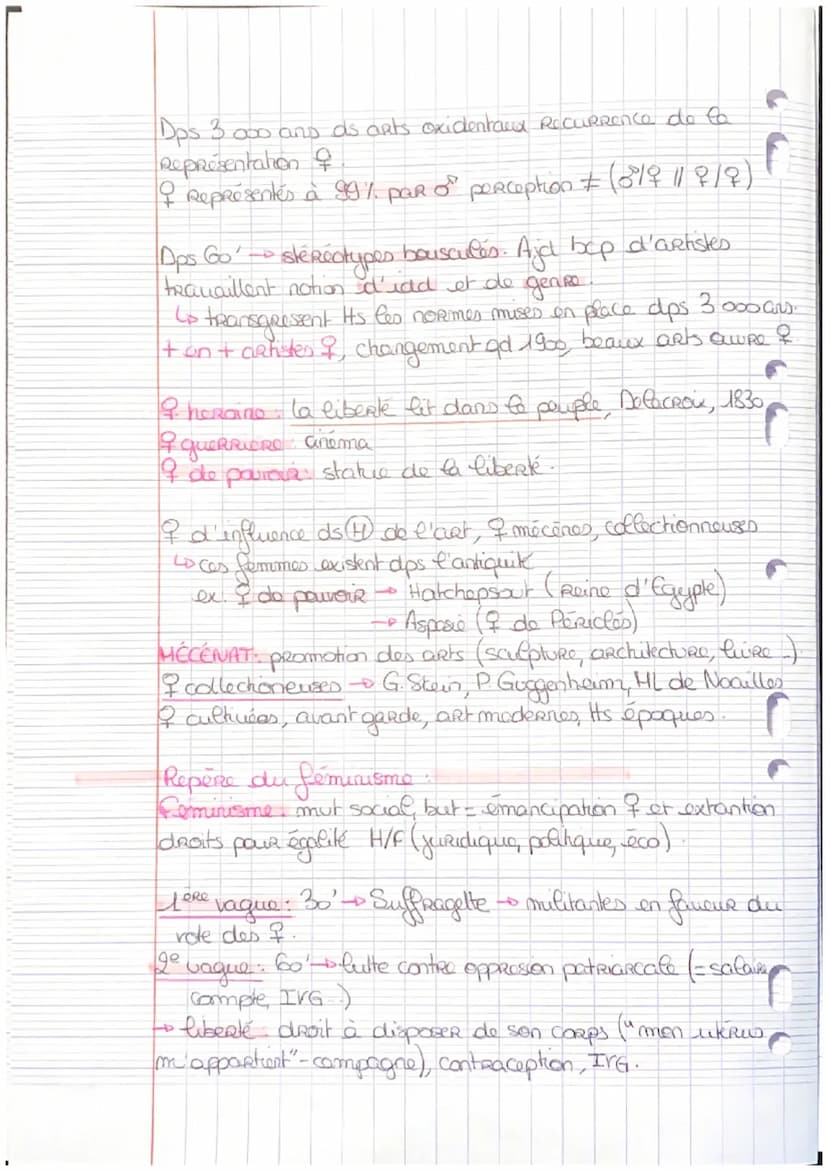 Dps 3 000 ans ds arts oxidentaux RécuRRence de la
Représentation ♀.
♀ Représentés à 99% paR ♂ perception ≠ (♂/♀ // ♀/♀)
Dps 60' → stéréotypes bousculés. Ajd bcp d'artistes
travaillent notion d'idd et de genre.
↳ transgressent tts les normes mises en place dps 3 000 ans.
+ en + artistes ♀, changement qd 1900, beaux arts ouvre ♀
♀ heroïne : la liberté
dans le peuple, Delacroix, 1830
♀ guerrière : cinéma
♀ de pouvoir : statue de la liberté.
♀ d'influence ds (H) de l'art, ♀ mécènes, collectionneuses
↳ ces femmes existent dps l'antiquité
ex. ♀ de pouvoir → Hatchepsout (Reine d'Egypte)
→ Aspasie (♀ de Périclès)
MÉCÉNAT : promotion des arts (sculpture, architecture, livre ...)
♀ collectioneuses → G. Stein, P. Guggenheim, ML de Noailles
♀ cultivées, avant garde, art modernes, tts époques.
Repère du féminisme :
Féminisme : mvt social, but = émancipation ♀ et extantion
droits pour égalité H/F (juridique, politique, éco)
1ère vague : 30' → Suffragette → militantes en faveur du
vote des ♀.
2e vague : 60' → lutte contre oppression patriarcale (= salaire,
compte, IVG ...)
→ liberté : droit à disposer de son corps ("mon utérus
m'appartient" - campagne), contraception, IVG.